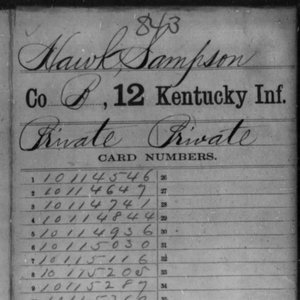 843
Hawk, Sampson
Co B, 12 Kentucky Inf.
Private Private
CARD NUMBERS.
1 10114546 26
2 10114647 27
3 10114741 28
4 10114844 29
5 10114936 30
6 10115030 31
7 10115116 32
8 10115205 33
9 10115287 34